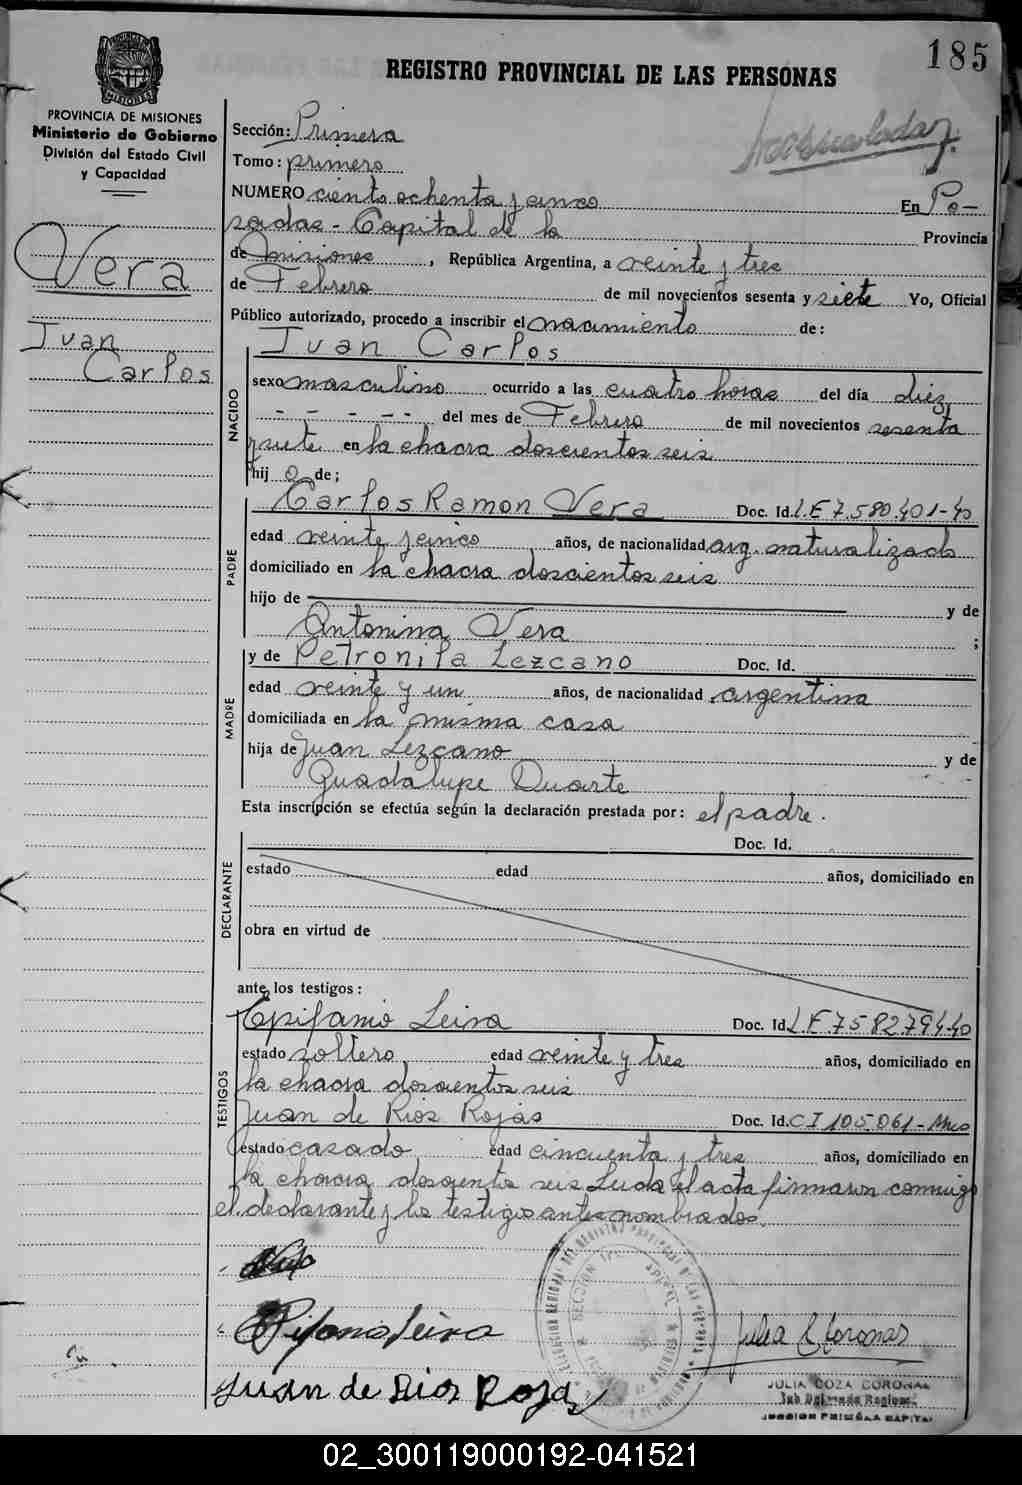 185
REGISTRO PROVINCIAL DE LAS PERSONAS
PROVINCIA DE MISIONES
Ministerio de Gobierno
División del Estado Civil
y Capacidad
Vera
Juan
Carlos
Sección: Primera
Tomo: primero
NUMERO ciento ochenta y cinco En Po-
sadas - Capital de la Provincia
de Misiones, República Argentina, a veinte y tres
de Febrero de mil novecientos sesenta y siete Yo, Oficial
Público autorizado, procedo a inscribir el nacimiento de:
Juan Carlos
NACIDO
sexo masculino ocurrido a las cuatro horas del día diez
- - - - - del mes de Febrero de mil novecientos sesenta
y siete en la chacra doscientos seis
hij o de;
PADRE
Carlos Ramon Vera Doc. Id. L.E 7.580.401-40
edad veinte y cinco años, de nacionalidad arg. naturalizado
domiciliado en la chacra doscientos seis
hijo de y de
Antonina Vera ;
MADRE
y de Petronila Lezcano Doc. Id.
edad veinte y un años, de nacionalidad argentina
domiciliada en la misma casa
hija de Juan Lezcano y de
Guadalupe Duarte
Esta inscripción se efectúa según la declaración prestada por: el padre.
DECLARANTE
Doc. Id.
estado edad años, domiciliado en
obra en virtud de
ante los testigos:
TESTIGOS
Epifanio Leiva Doc. Id. L.E 7582794-40
estado soltero edad veinte y tres años, domiciliado en
la chacra doscientos seis
Juan de Rios Rojas Doc. Id. CI 105.061-Mnes
estado casado edad cincuenta y tres años, domiciliado en
la chacra doscientos seis Leida el acta firmaron conmigo
el declarante y los testigos antes nombrados.
Epifanio Leiva
Juan de Dios Rojas
JULIA COZA CORONAL
Sub Delegada Regional
SECCION PRIMERA CAPITAL
02_300119000192-041521